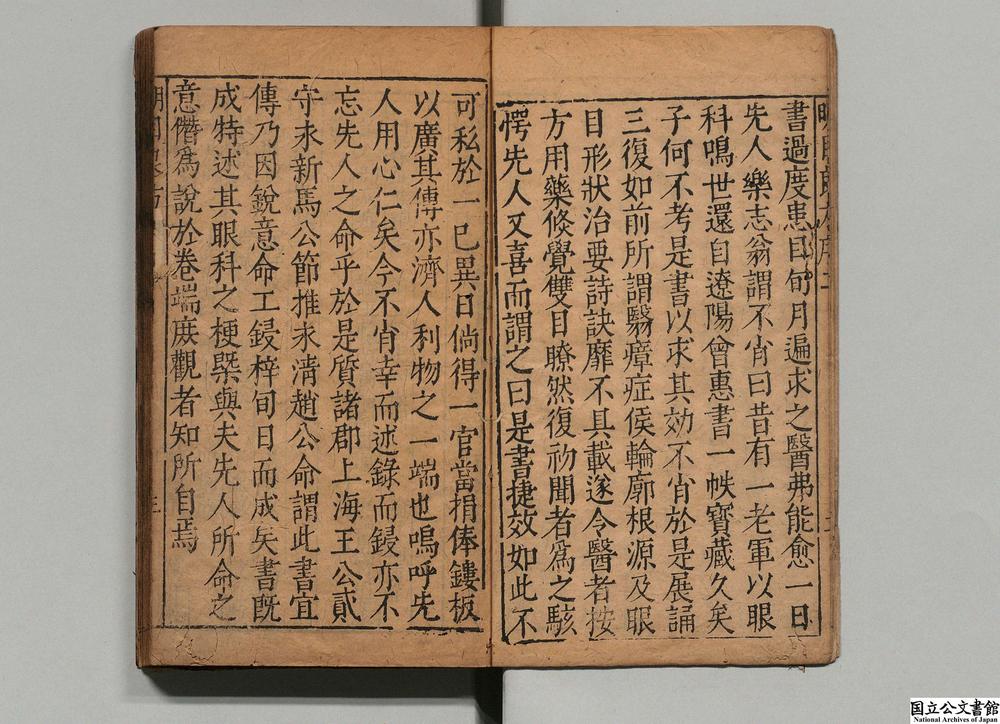 書過度患目旬月遍求之醫弗能愈一日
先人樂志翁謂不肖曰昔有一老軍以眼
科鳴世還自遼陽曾惠書一帙寶藏久矣
子何不考是書以求其効不肖於是展誦
三復如前所謂翳瘴症侯輪廓根源及眼
目形狀治要詩訣靡不具載遂令醫者按
方用藥倐覺雙目瞭然復初聞者爲之駭
愕先人又喜而謂之曰是書捷效如此不
可私於一己異日倘得一官當捐俸鏤板
以廣其傳亦濟人利物之一端也嗚呼先
人用心仁矣今不肖幸而述錄而鋟亦不
忘先人之命乎於是質諸郡上海王公貳
守永新馬公節推永清趙公命謂此書宜
傳乃因銳意命工鋟梓旬日而成矣書旣
成特述其眼科之梗槩與夫先人所命之
意僭爲說於卷端庻觀者知所自焉
国立公文書館
National Archives of Japan